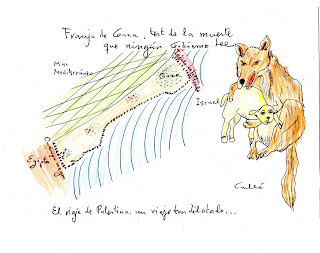 Franja de Gaza, test de la muerte
que ningún Gobierno lee
Mar
Mediterráneo
Gaza
Israel
Egipto
El viaje de Palestina, un viaje tan dilatado...